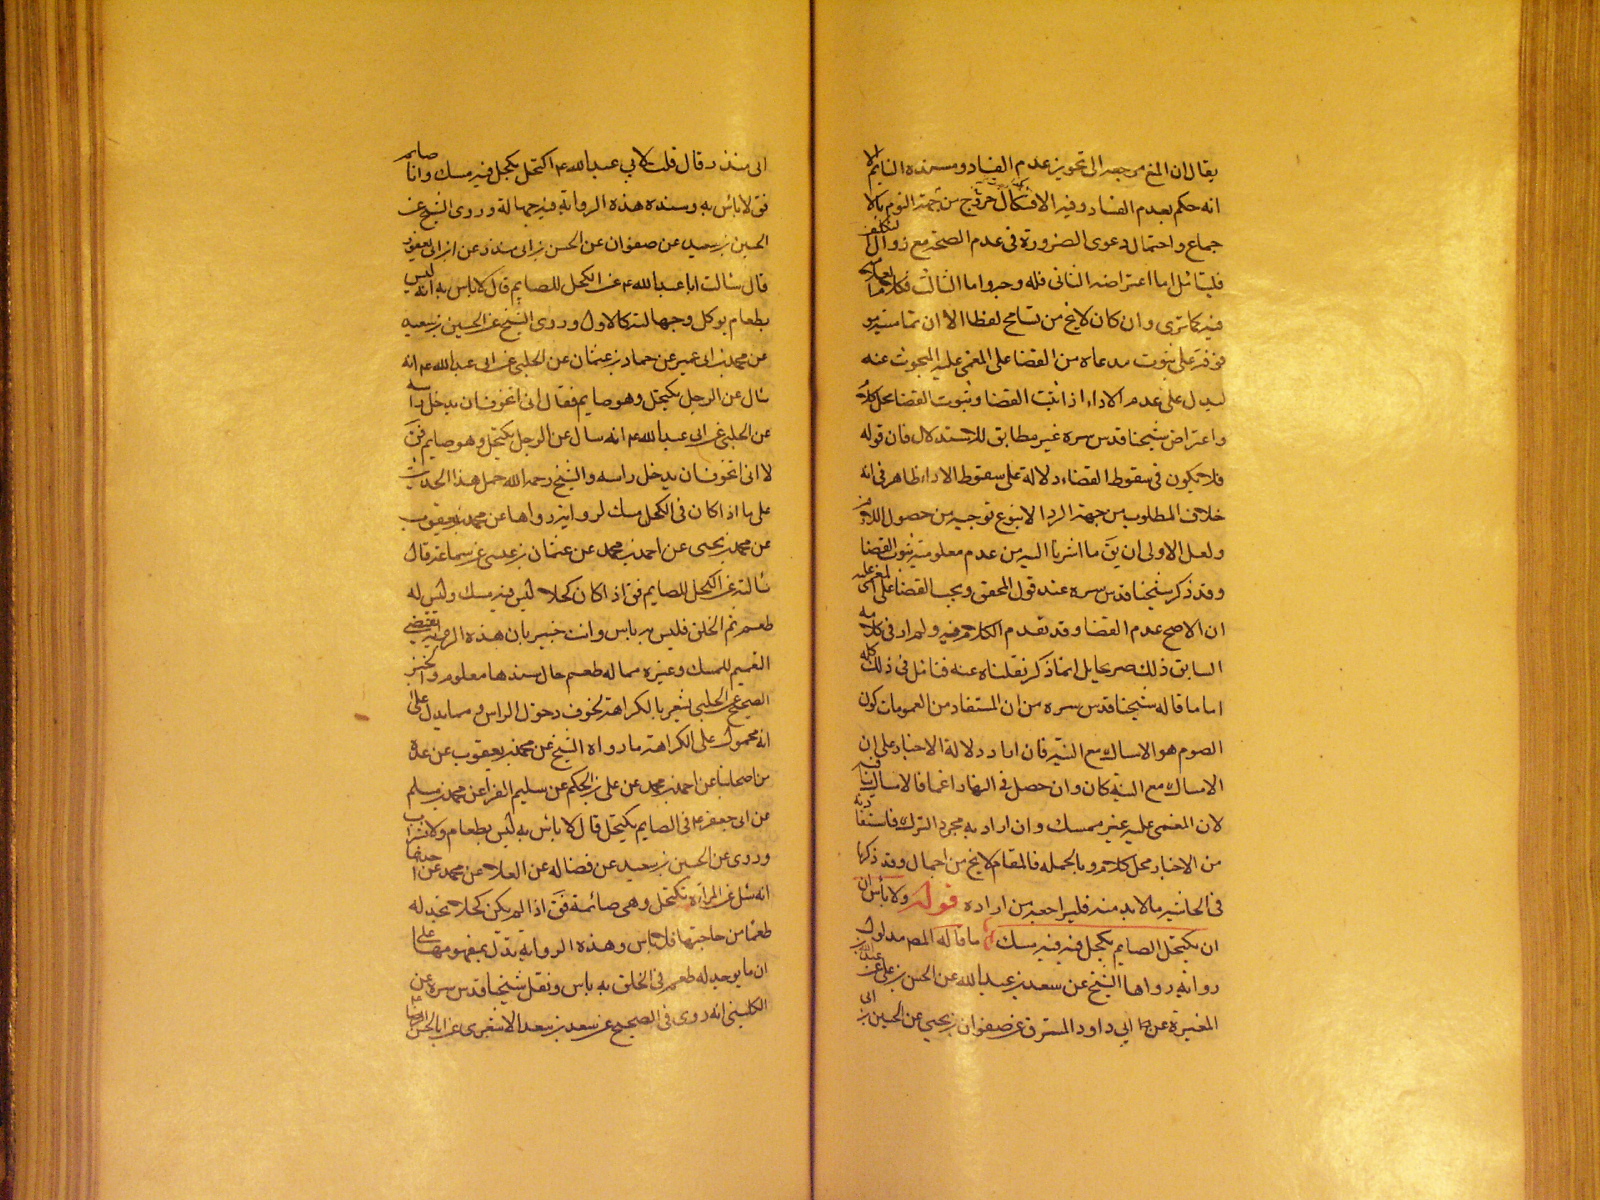 يقال ان المغ مرجعه الى تجويز عدم الفساد ومستنده النايم الا
انه حكم بعدم الفساد وفيه الاشكال خرج من جهة النوم بالا
جماع واحتمال دعوى الضرورة في عدم الصحة مع زوال التكليف
فليتأمل اما اعتراضه الثاني فله وجه واما الثالث فكلامه
فيه كما ترى وان كان لا يخ من تسامح لفظا الا ان تماميته مو
قوفة على ثبوت مدعاه من القضا على المغمى عليه المبحوث عنه
ليدل على عدم الاداء اذا ثبت القضا وثبوت القضا محل كلام
واعتراض شيخنا قدس سره غير مطابق للاستدلال فان قوله
فلا يكون في سقوط القضاء دلالة على سقوط الاداء ظاهر في انه
خلاف المطلوب من جهة الرد الا بنوع توجيه من حصول اللازم
ولعل الاولى ان يق ما اشرنا اليه من عدم معلومية ثبوت القضا
وقد ذكر شيخنا قدس سره عند قول المحقق ويجب القضا على المغمى عليه
ان الاصح عدم القضا وقد تقدم الكلام فيه ولم ار في كلامه
السابق ذلك صريحا بل انما ذكر نقلناه عنه فتأمل في ذلك كله
اما ما قاله شيخنا قدس سره من ان المستفاد من العمومات كون
الصوم هو الامساك مع النية فان اراد دلالة الاخبار على ان
الامساك مع النية كان وان حصل في النهار اغما فالامساك
لان المغمى عليه غير ممسك وان اراد به مجرد الترك فاستفادته
من الاخبار محل كلام وبالجمله فالمقام لا يخ من اجمال وقد ذكرنا
في الحاشية ما لا بد منه فليراجعه من اراده قوله ولا بأس ان
ان يكتحل الصايم بكحل فيه فيه مسك ما قاله المصـ مدلول
رواية رواها الشيخ عن سعد بن عبد الله عن الحسن بن علي عن عبد الله بن
المغيرة عن ابي داود المسترق عن صفوان بن يحيى عن الحسين بن ابي
ابى منذر قال قلت لابي عبد الله ع اكتحل بكحل فيه مسك وانا صايم
فق لا بأس به وسند هذه الرواية فيه جهالة وروى الشيخ عن
الحسين بن سعيد عن صفوان عن الحسن بن ابى منذر عن ابن ابى يعفور
قال سالت ابا عبد الله ع عن الكحل للصايم قال لا باس به انه ليس
بطعام يوكل وجهالته كالاول وروى الشيخ عن الحسين بن سعيد
عن محمد بن ابى عمير عن حماد بن عثمان عن الحلبي عن ابى عبد الله ع انه
سال عن الرجل يكتحل وهو صايم فقال انى اتخوف ان يدخل راسه
عن الحلبي عن ابى عبد الله ع انه سال عن الرجل يكتحل وهو صايم فق
لا انى اتخوف ان يدخل راسه والشيخ رحمه الله حمل هذا الحديث
على ما اذا كان في الكحل مسك لرواية رواها عن محمد بن يعقوب
عن محمد بن يحيى عن احمد بن محمد عن عثمان بن عيسى عن سماعة قال
سالته عن الكحل للصايم فق اذا كان كحلا ليس فيه مسك وليس له
طعم في الحلق فليس به باس وانت خبير بان هذه الرواية تقتضي
التعميم للمسك وغيره مما له طعم حال سندها معلوم والخبر
الصحيح عن الحلبي يشعر بالكراهة لخوف دخول الراس ومما يدل على
انه محمول على الكراهة ما رواه الشيخ عن محمد بن يعقوب عن عدة
من اصحابنا عن احمد بن محمد عن على بن الحكم عن سليم الفراء عن محمد بن مسلم
عن ابى جعفر ع في الصايم يكتحل قال لا باس به ليس بطعام ولا شراب
وروى عن الحسين بن سعيد عن فضاله عن العلاء عن محمد عن احدهما
انه سئل عن المراة تكتحل وهى صائمة فق اذا لم يكن كحلا تجد له
طعما من حلقها فلا باس وهذه الرواية تدل بمفهومها على
ان ما يوجد له طعم في الحلق به باس ونقل شيخنا قدس سره عن
الكليني انه روى في الصحيح عن سعد بن سعد الاشعرى عن ابا الحسن الرضا ع